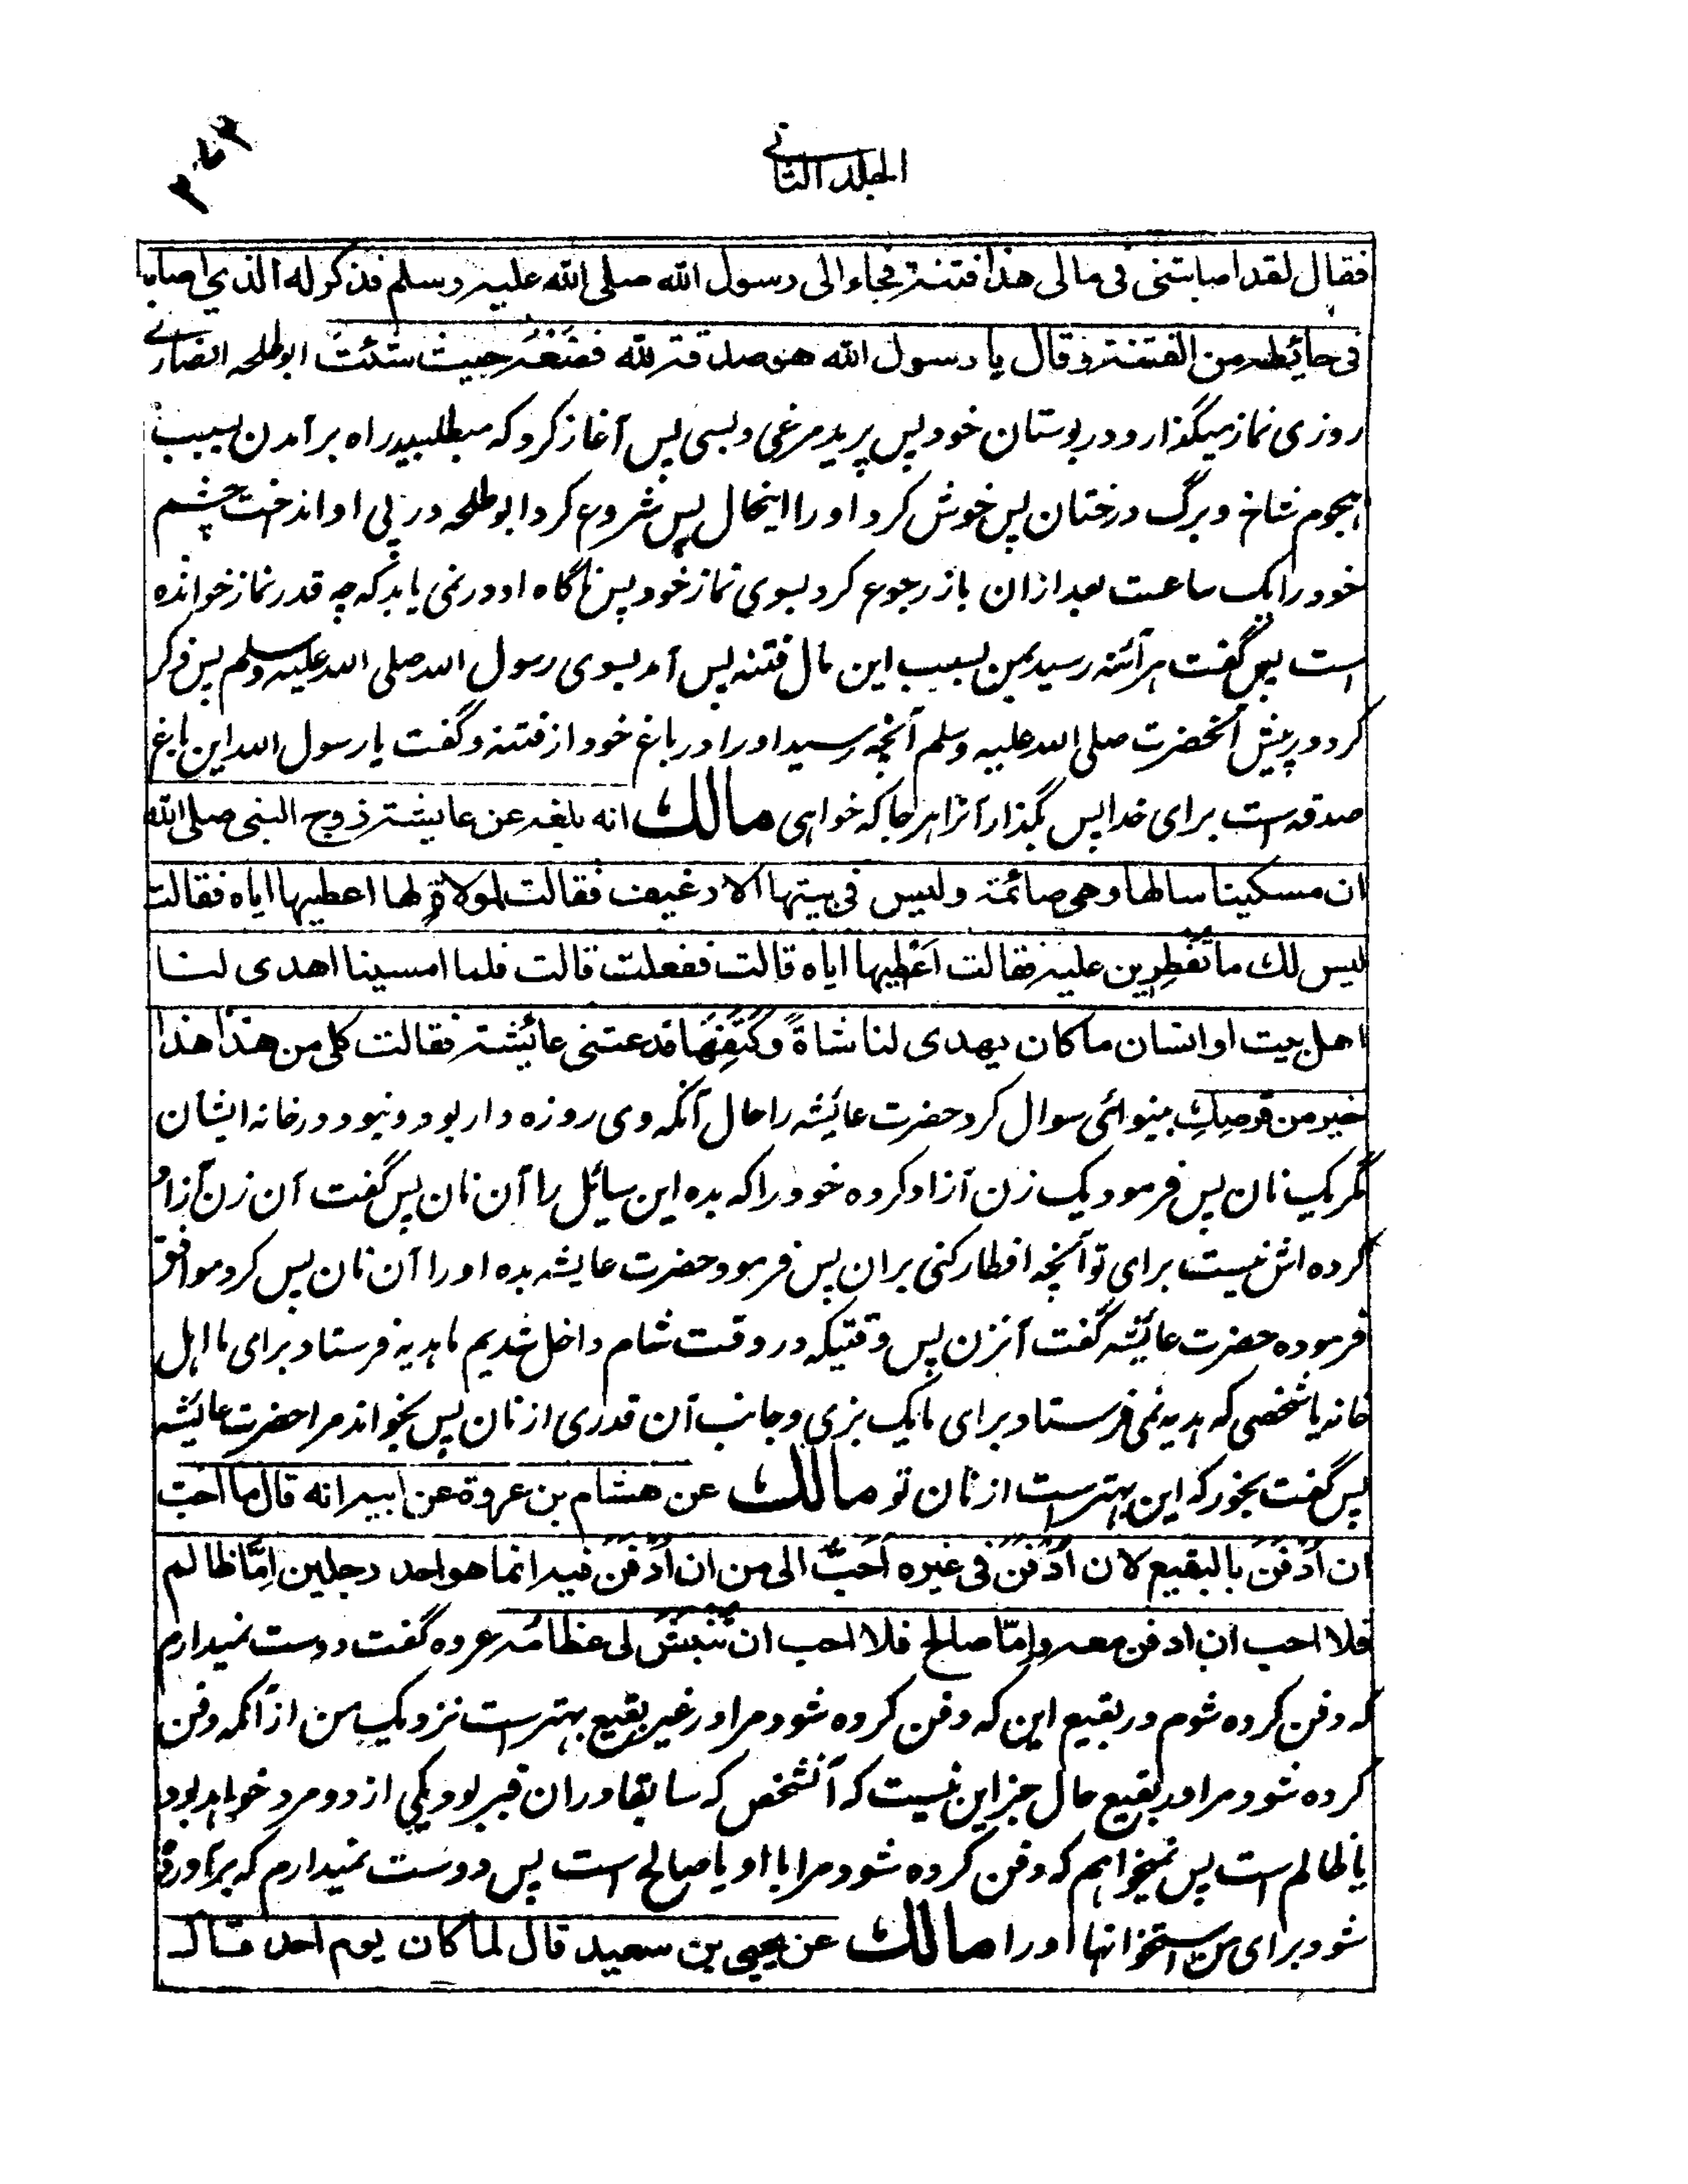 المجلد الثاني
فقال لقد اصابتنی فی مالی هذا فتنة فجاء الی رسول الله صلی الله علیه وسلم فذکر له الذي اصابه
فی حائطه من الفتنة وقال یا رسول الله هو صدقة لله فضَعْهُ حیث شئتَ ابوطلحه انصاری
روزی نماز میگذارد در بوستان خود پس پرید مرغی دبسی پس آغاز کرد که میطلبید راه برآمدن بسبب
هجوم شاخ و برگ درختان پس خوش کرد او را اینحال پس شروع کرد ابوطلحه در پی او انداخت چشم
خود را یک ساعت بعد ازان باز رجوع کرد بسوی نماز خود پس ناگاه او در نمی یابد که چه قدر نماز خوانده
است پس گفت هر آئنه رسید بمن بسبب این مال فتنه پس آمد بسوی رسول الله صلی الله علیه وسلم پس ذکر
کرد در پیش آنحضرت صلی الله علیه وسلم آنچه رسید او را در باغ خود از فتنه و گفت یا رسول الله این باغ
صدقه است برای خدا پس بگذار آنرا هر جا که خواهی مالك انه بلغه عن عایشة زوج النبی صلی الله
ان مسکینا سالها وهی صائمة ولیس فی بیتها الا رغیف فقالت لمولاة لها اعطیها ایاه فقالت
لیس لك ما تُفطِرین علیه فقالت اَعْطِیها ایاه قالت ففعلت قالت فلما امسینا اهدی لنا
اهل بیت او انسان ما کان یهدی لنا شاةً وکَتِفَهَا فدعتنی عائشة فقالت کلی من هذا هذا
خیر من قرصِكِ بینوائی سوال کرد حضرت عایشه را حال آنکه وی روزه دار بود و نبود در خانه ایشان
مگر یک نان پس فرمود یک زن آزاد کرده خود را که بده این سایل را آن نان پس گفت آن زن آزاد
کرده اش نیست برای تو آنچه افطار کنی بران پس فرمود حضرت عایشه بده او را آن نان پس کرد موافق
فرموده حضرت عائشه گفت آنزن پس وقتیکه در وقت شام داخل شدیم ما هدیه فرستاد برای ما اهل
خانه یا شخصی که هدیه نمی فرستاد برای ما یک بزی و جانب آن قدری از نان پس بخواند مرا حضرت عائشه
پس گفت بخور که این بهتر است از نان تو مالك عن هشام بن عروة عن ابیه انه قال ما احبّ
ان اُدْفَنَ بالبقیع لان اُدْفَنَ فی غیره اَحَبُّ الی من ان اُدْفَنَ فیه انما هو احد رجلین اِمَّا ظالم
فلا احب ان ادفن معه واِمّا صالح فلا احب ان تُنْبَشَ لی عظامُه عروه گفت دوست نمیدارم
که دفن کرده شوم در بقیع این که دفن کرده شود مرا در غیر بقیع بهتر است نزدیک من از آنکه دفن
کرده شود مرا در بقیع حال جز این نیست که آنشخص که سابقا دران قبر بود یکی از دو مرد خواهد بود
یا ظالم است پس نمیخواهم که دفن کرده شود مرا با او یا صالح است پس دوست نمیدارم که برآورده
شود برای من استخوانها او را مالك عن یحیی بن سعید قال لما کان یوم احد قال